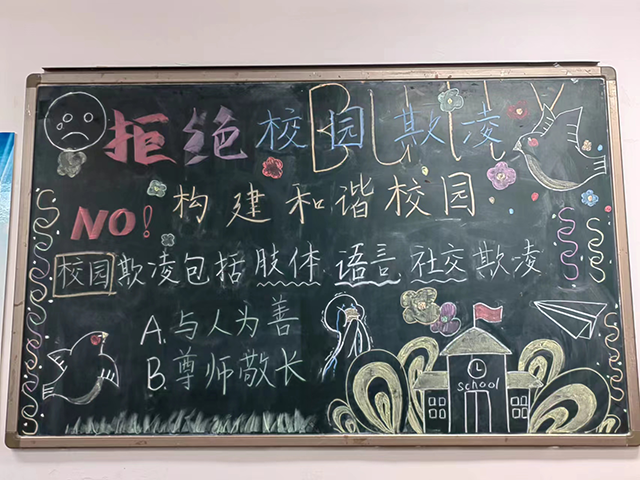 拒绝校园欺凌
BULLY
NO!
构建和谐校园
校园欺凌包括肢体 语言 社交欺凌
A.与人为善
B.尊师敬长
school